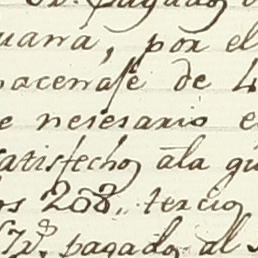 pagados
uana, por el
macenaje de
e nesesario e
satisfechos ala gu
os 208,, tercios
pagados al